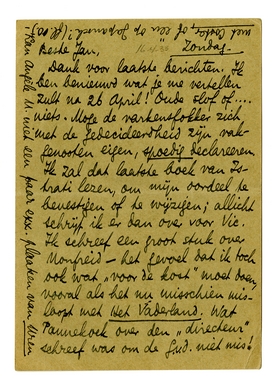 met Costa, of "en" op Japansch! (Ha!)
16.4.33
Beste Jan, Zondag
Dank voor laatste berichten. Ik
ben benieuwd wat je me vertellen
zult na 26 April! Oude slof of ....
niets. Moge de varkensfokker zich,
met de gedecideerdheid zijn vak-
genooten eigen, spoedig declareeren.
Ik zal dat laatste boek van Is-
trati lezen, om mijn oordeel te
bevestigen of te wijzigen; allicht
schrijf ik er dan over voor Vic.
Ik schreef een groot stuk over
Monfreid — het gevoel dat ik toch
ook wat "voor de kost" moet doen,
vooral als het nu misschien mis-
loopt met Het Vaderland. Wat
Pannekoek over den "directeur"
schreef was om de G.v.d. niet mis!
Kan Angèle U. met een paar ex. plaatsen van Uren